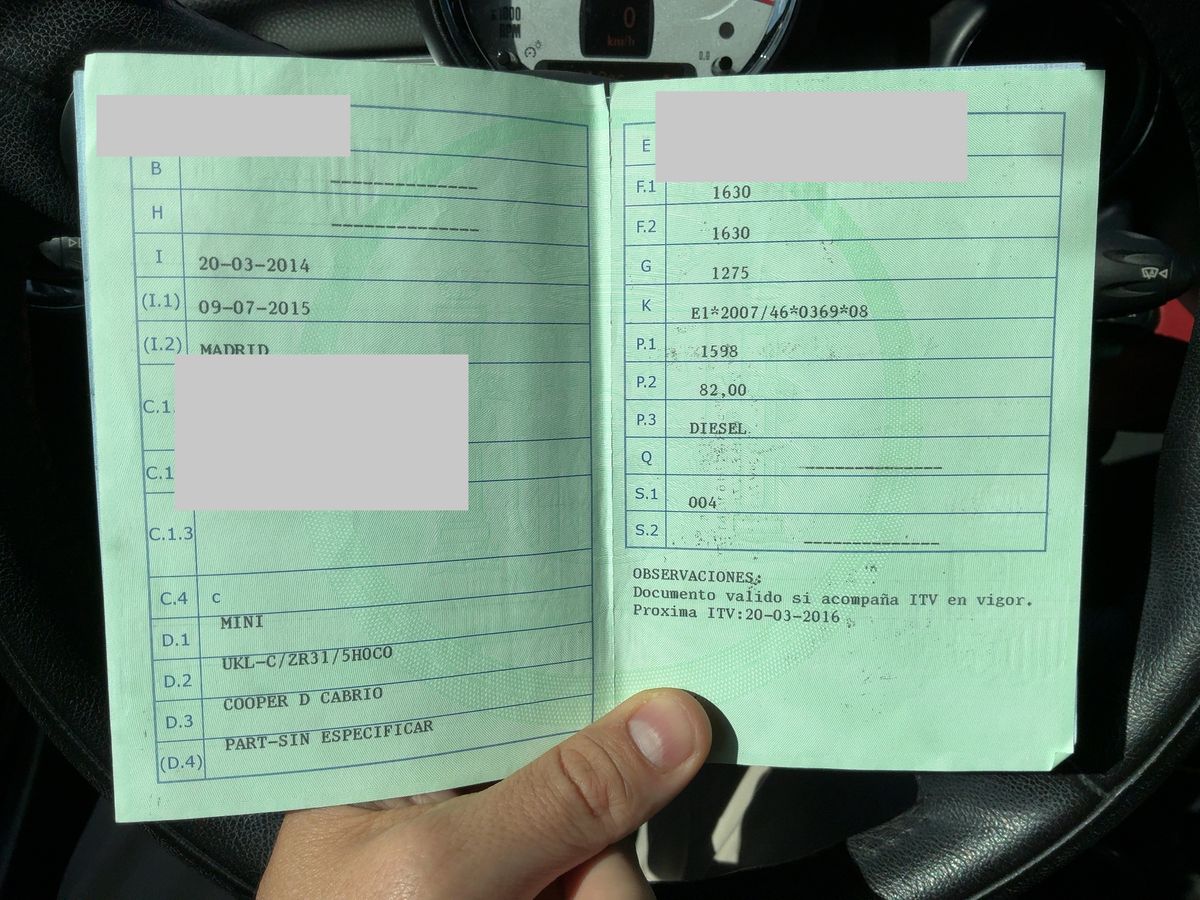 x1000
RPM
0
km/h
0.0
B --------------
H --------------
I 20-03-2014
(I.1) 09-07-2015
(I.2) MADRID
C.1.
C.1
C.1.3
C.4 c
D.1 MINI
D.2 UKL-C/ZR31/5H0C0
D.3 COOPER D CABRIO
(D.4) PART-SIN ESPECIFICAR
E
F.1 1630
F.2 1630
G 1275
K E1*2007/46*0369*08
P.1 1598
P.2 82,00
P.3 DIESEL
Q --------------
S.1 004
S.2 --------------
OBSERVACIONES:
Documento valido si acompaña ITV en vigor.
Proxima ITV:20-03-2016